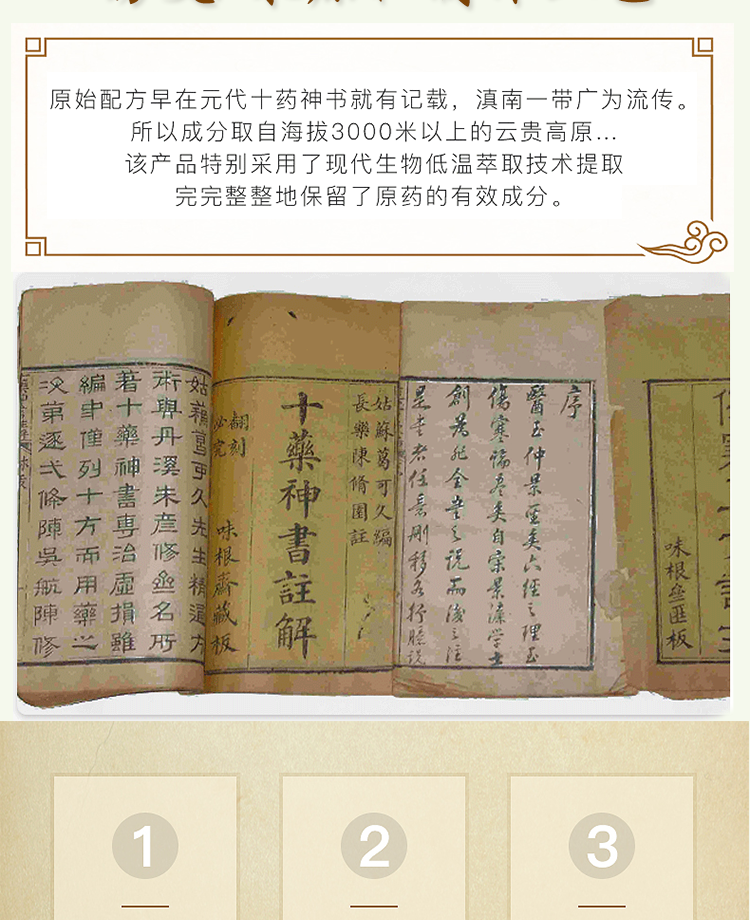 原始配方早在元代十药神书就有记载，滇南一带广为流传。
所以成分取自海拔3000米以上的云贵高原...
该产品特别采用了现代生物低温萃取技术提取
完完整整地保留了原药的有效成分。
序
醫王仲景聖矣六經之理玉
傷寒論盡矣自宋景濂学士
姑蘇葛可久編
長樂陳脩園註
十藥神書註解
翻刻
必究
味根齋藏板
姑蘇葛可久先生精通方
術與丹溪朱彦修並名所
著十藥神書專治虛損雖
編中僅列十方而用藥之
次第逐弍條陳吳航陳修
味根
匪板
1
2
3